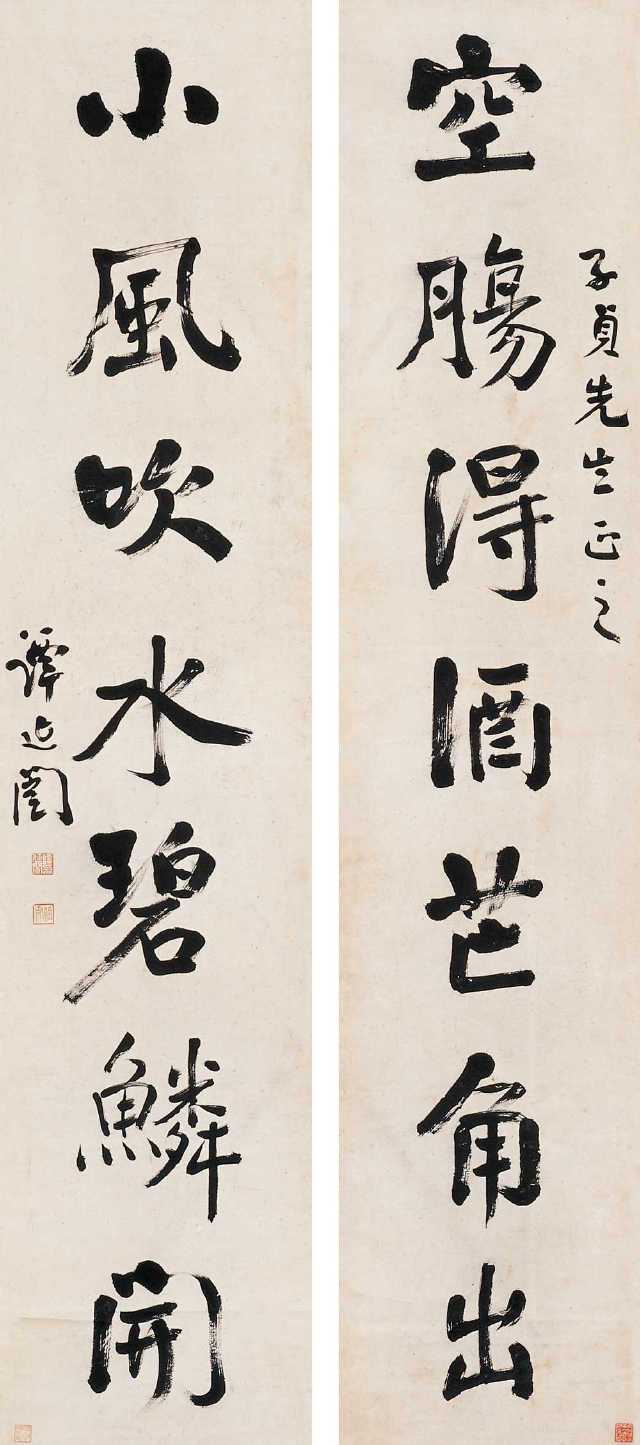 空腸得酒芒角出
子貞先生正之
小風吹水碧鱗開
譚延闓